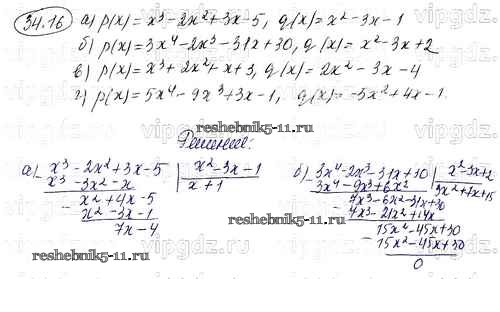 34.16 а) p(x) = x³ - 2x² + 3x - 5, q(x) = x² - 3x - 1
б) p(x) = 3x⁴ - 2x³ - 31x + 30, q(x) = x² - 3x + 2
в) p(x) = x³ + 2x² + x + 3, q(x) = 2x² - 3x - 4
г) p(x) = 5x⁴ - 9x³ + 3x - 1, q(x) = -5x² + 4x - 1
Решение:
reshebnik5-11.ru
а) x³ - 2x² + 3x - 5 | x² - 3x - 1
x³ - 3x² - x | x + 1
x² + 4x - 5
x² - 3x - 1
7x - 4
б) 3x⁴ - 2x³ - 31x + 30 | x² - 3x + 2
3x⁴ - 9x³ + 6x² | 3x² + 7x + 15
7x³ - 6x² - 31x + 30
7x³ - 21x² + 14x
15x² - 45x + 30
15x² - 45x + 30
0
reshebnik5-11.ru
reshebnik5-11.ru
vipgdz.ru